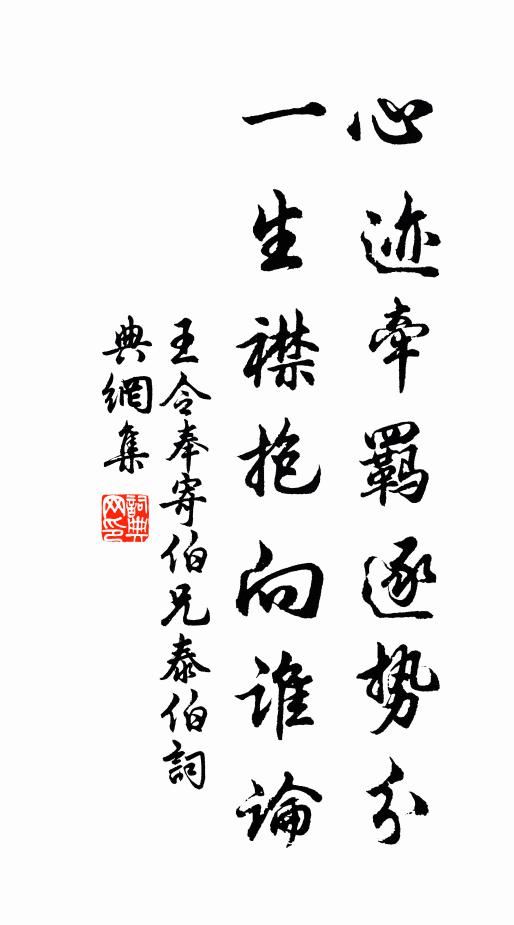 心迹牵羁逐势分
一生襟抱向谁论
王令奉寄伯兄泰伯詞
典網集
詞典网印